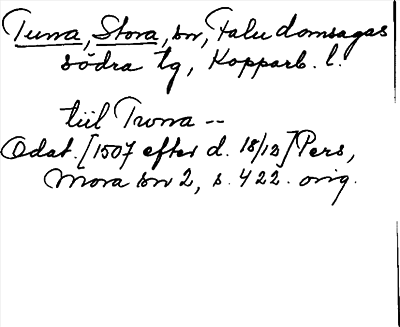 Tuna, Stora, sn, Falu domsagas
södra tg, Kopparb. l.
tiil Twna --
Odat. [1507 efter d. 18/12] Pers,
Mora sn 2, s. 422. orig.